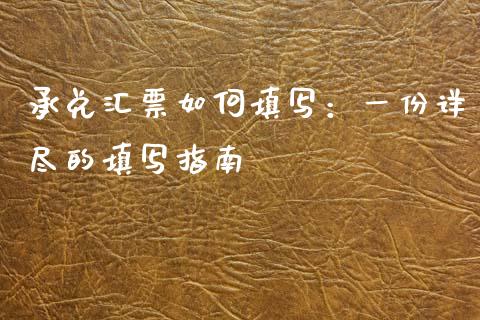 承兑汇票如何填写：一份详
尽的填写指南